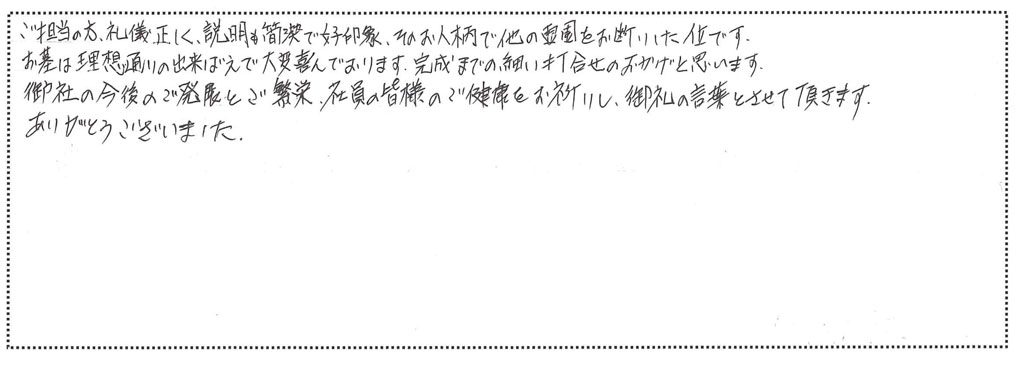 ご担当の方、礼儀正しく、説明も簡潔で好印象、そのお人柄で他の霊園をお断りした位です.
お墓は理想通りの出来ばえで大変喜んでおります. 完成までの、細い打合せのおかげと思います.
御社の今後のご発展とご繁栄、社員の皆様のご健康をお祈りし、御礼の言葉とさせて頂きます.
ありがとうございました.